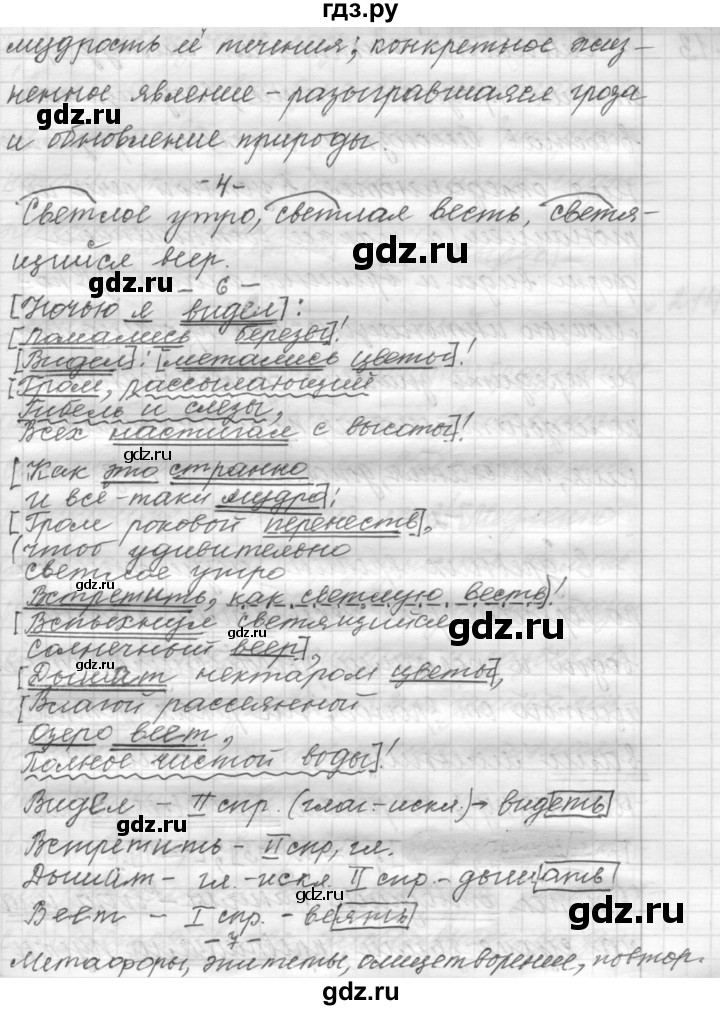 гдз.ру
мудрость её течения; конкретное жиз-
ненное явление - разыгравшаяся гроза
gdz.ru
и обновление природы.
gdz.ru
-4-
Светлое утро, светлая весть, светя-
gdz.ru
щийся веер.
gdz.ru
- 6 -
[Ночью я видел]:
[Ломались березы]!
[Видел]: [метались цветы]!
gdz.ru
[Гром, рассылающий
Гибель и слезы,
gdz.ru
Всех настигал с высоты]!
gdz.ru
[Как это странно
и всё-таки мудро]:
[Гром роковой перенесть],
gdz.ru
(чтоб удивительно
светлое утро
gdz.ru
Встретить, как светлую весть)!
[Вспыхнул светящийся
gdz.ru
gdz.ru
солнечный веер],
[Дышат нектаром цветы],
gdz.ru
[Влагой рассеянный
gdz.ru
Озеро веет,
Полное чистой воды]!
gdz.ru
Видел - II спр. (глаг.-искл.)→ видеть
gdz.ru
Встретить - II спр, гл.
Дышат - гл.-искл. II спр.- дышать
gdz.ru
Веет - I спр. - веять
gdz.ru
- 7 -
Метафоры, эпитеты, олицетворение, повтор.
gdz.ru
gdz.ru